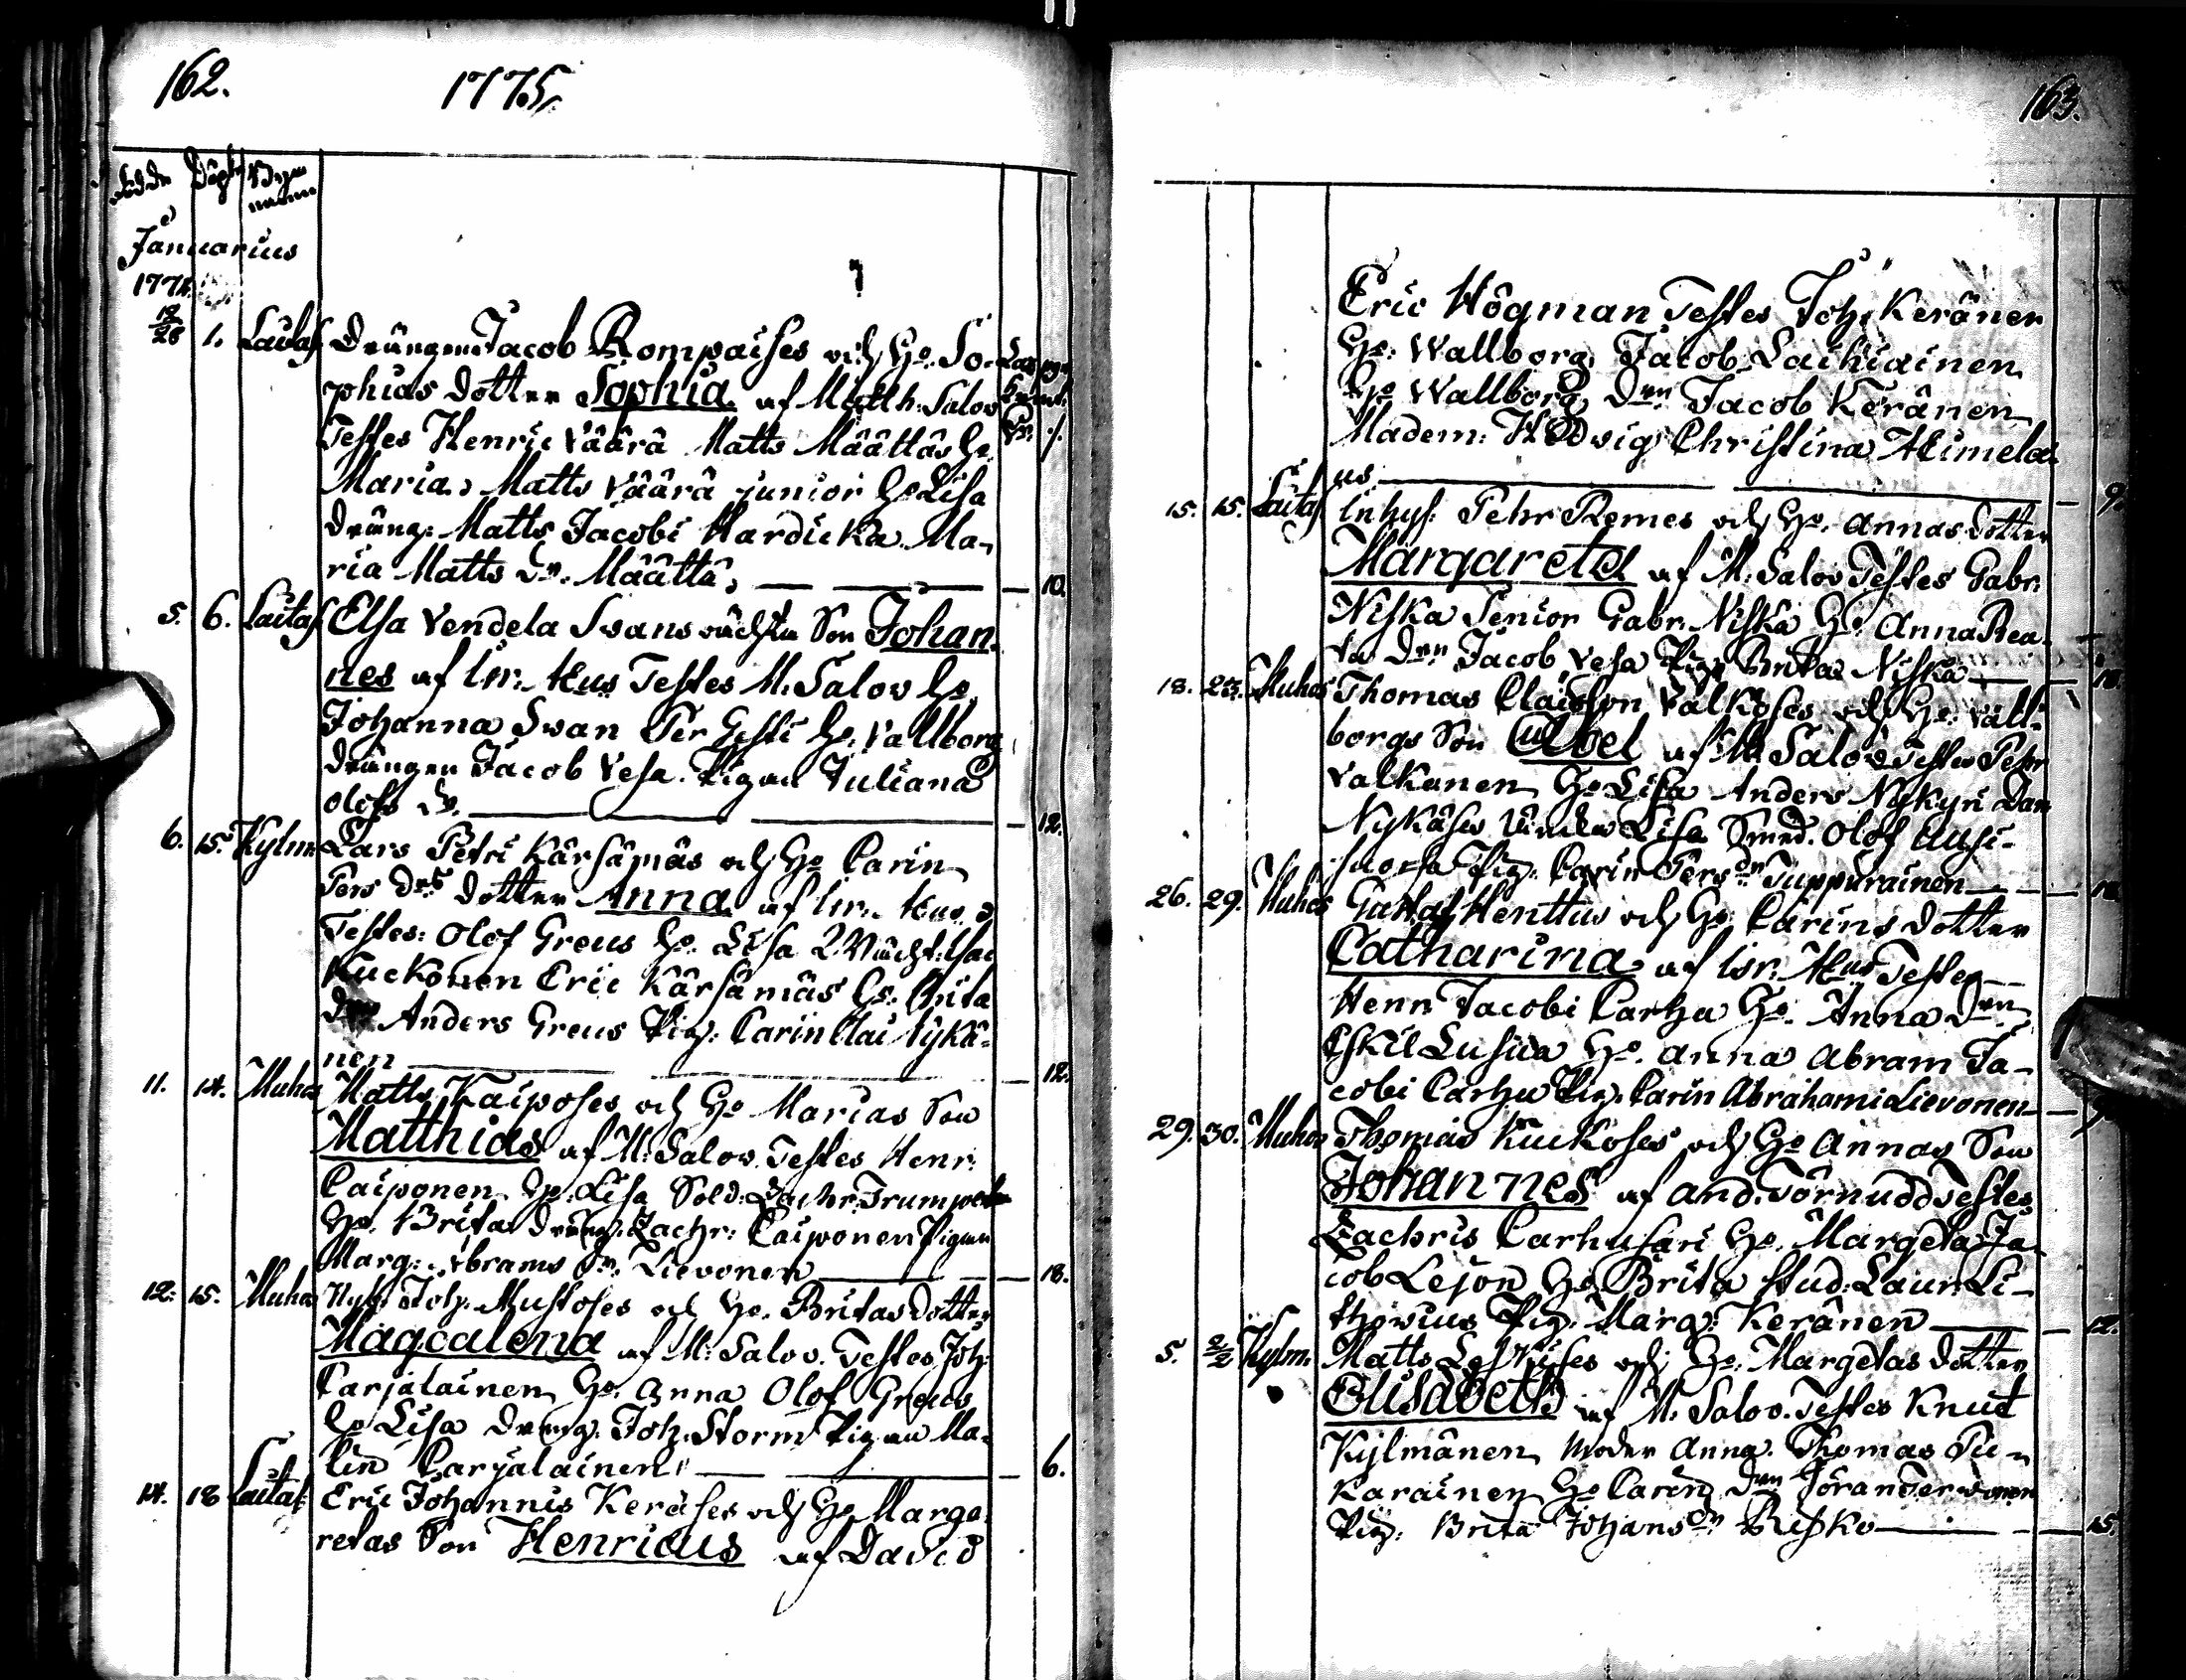 162.
1775,
Födde Döpte Byns namn
Januarius
1774.
12/28 1. Laitas. Drängen Jacob Rompaises och H:o So-
phias dotter Sophia af M. Salov
Testes Henric Väärä Matts Määttäs H:o
Maria, Matts Väärä junior H:o Lisa
dräng: Matts Jacobi Hardicka Ma-
ria Matts dr. Määttä, — 10.
5. 6. Laitas. Elsa Vendela Svans oächta Son Johan-
nes af Testes M. Salov H:o
Johanna Swan Per H:o Vallborg
drängen Jacob Vesa. Pigan Juliana
Olofs dr. — 12.
6. 15. Kylm. Lars Petri Kärsämäs och H:o Carin
Pers drs dotter Anna af
Testes: Olof Greus H:o Lisa Isac
Kuckonen Eric Kärsämäs H:o Brita
Anders Greus Pig: Carin Clai Nykä-
nen — 12.
11. 14. Muhos Matts Kaiposes och H:o Marias Son
Matthias af M: Salov. Testes Henr:
Caiponen H:o Lisa Sold: Zachr.
H:o Brita dräng: Zachr: Caiponen Pigan
Marg: Abrams dr. Lievonen — 18.
12. 15. Muhos Joh. Mustoses och H:o Britas dotter
Magdalena af M: Salov. Testes Joh:
Carjalainen H:o Anna Olof Greus
H:o Lisa dräng. Joh. Storm Pigan Ma-
lin Carjalainen — 6.
14. 18 Laitas. Eric Johannis Keräses och H:o Marga-
retas Son Henricus af David
163.
Eric Högman Testes Joh. Keränen
H:o Wallborg, Jacob Laihiainen
H:o Wallborg, Drn Jacob Keränen
Madem: Hedvig Christina Heimelæ-
us — 9.
15. 15. Laitas. Inhys: Pehr Remes och H:o Annas dotter
Margareta af M: Salov Testes Gabr.
Niska Senior Gabr. Niska H:o Anna Bea-
ta Drn Jacob Vesa Pig: Brita Niska — 18.
18. Muhos Thomas Claësson Valkoses och H:o Vall-
borgs Son Abel af M. Salov Testes Pehr
Valkanen H:o Lisa Anders Nykyri Dan
Nykäses Lisa Olof
Pig: Carin Pers dr Tuppurainen —
26. 29. Muhos Gustaf Henttus och H:o Carins dotter
Catharina af Testes
Henr. Jacobi Carhu H:o Anna Drn
Eskil Lusua H:o Anna Abram Ja-
cobi Carhu Pig: Carin Abrahami Lievonen — 9.
29. 30. Muhos Thomas Kuckoses och H:o Annas Son
Johannes af And. Törnudd Testes
Zachris Carhusari H:o Margeta Ja-
cob Lejon H:o Brita Stud: Laur. Li-
thovius Pig: Marg: Keränen — 12.
5. 2/2 Kylm. Matts och H:o Margetas dotter
Elisabeth af M. Salov. Testes Knut
Kylmänen Moder Anna. Thomas Pu-
karainen H:o Carin Drn Jöran Tervonen
Pig: Brita Johans dr Risko — 15.